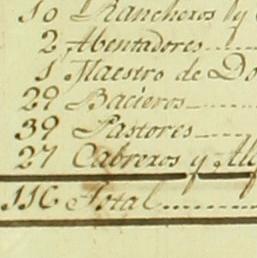 10 Rancheros y
2 Abentadores
1 Maestro de Do
29 Bacieros
39 Pastores
27 Cabreros y
116 Total